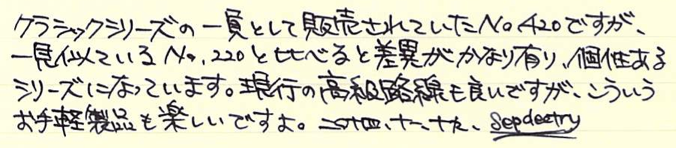 クラシックシリーズの一員として販売されていたNo.420ですが、
一見似ているNo.220と比べると差異がかなり有り、個性ある
シリーズになっています。現行の高級路線も良いですが、こういう
お手軽製品も楽しいですよ。二十四、十二、十九、Sepdectry